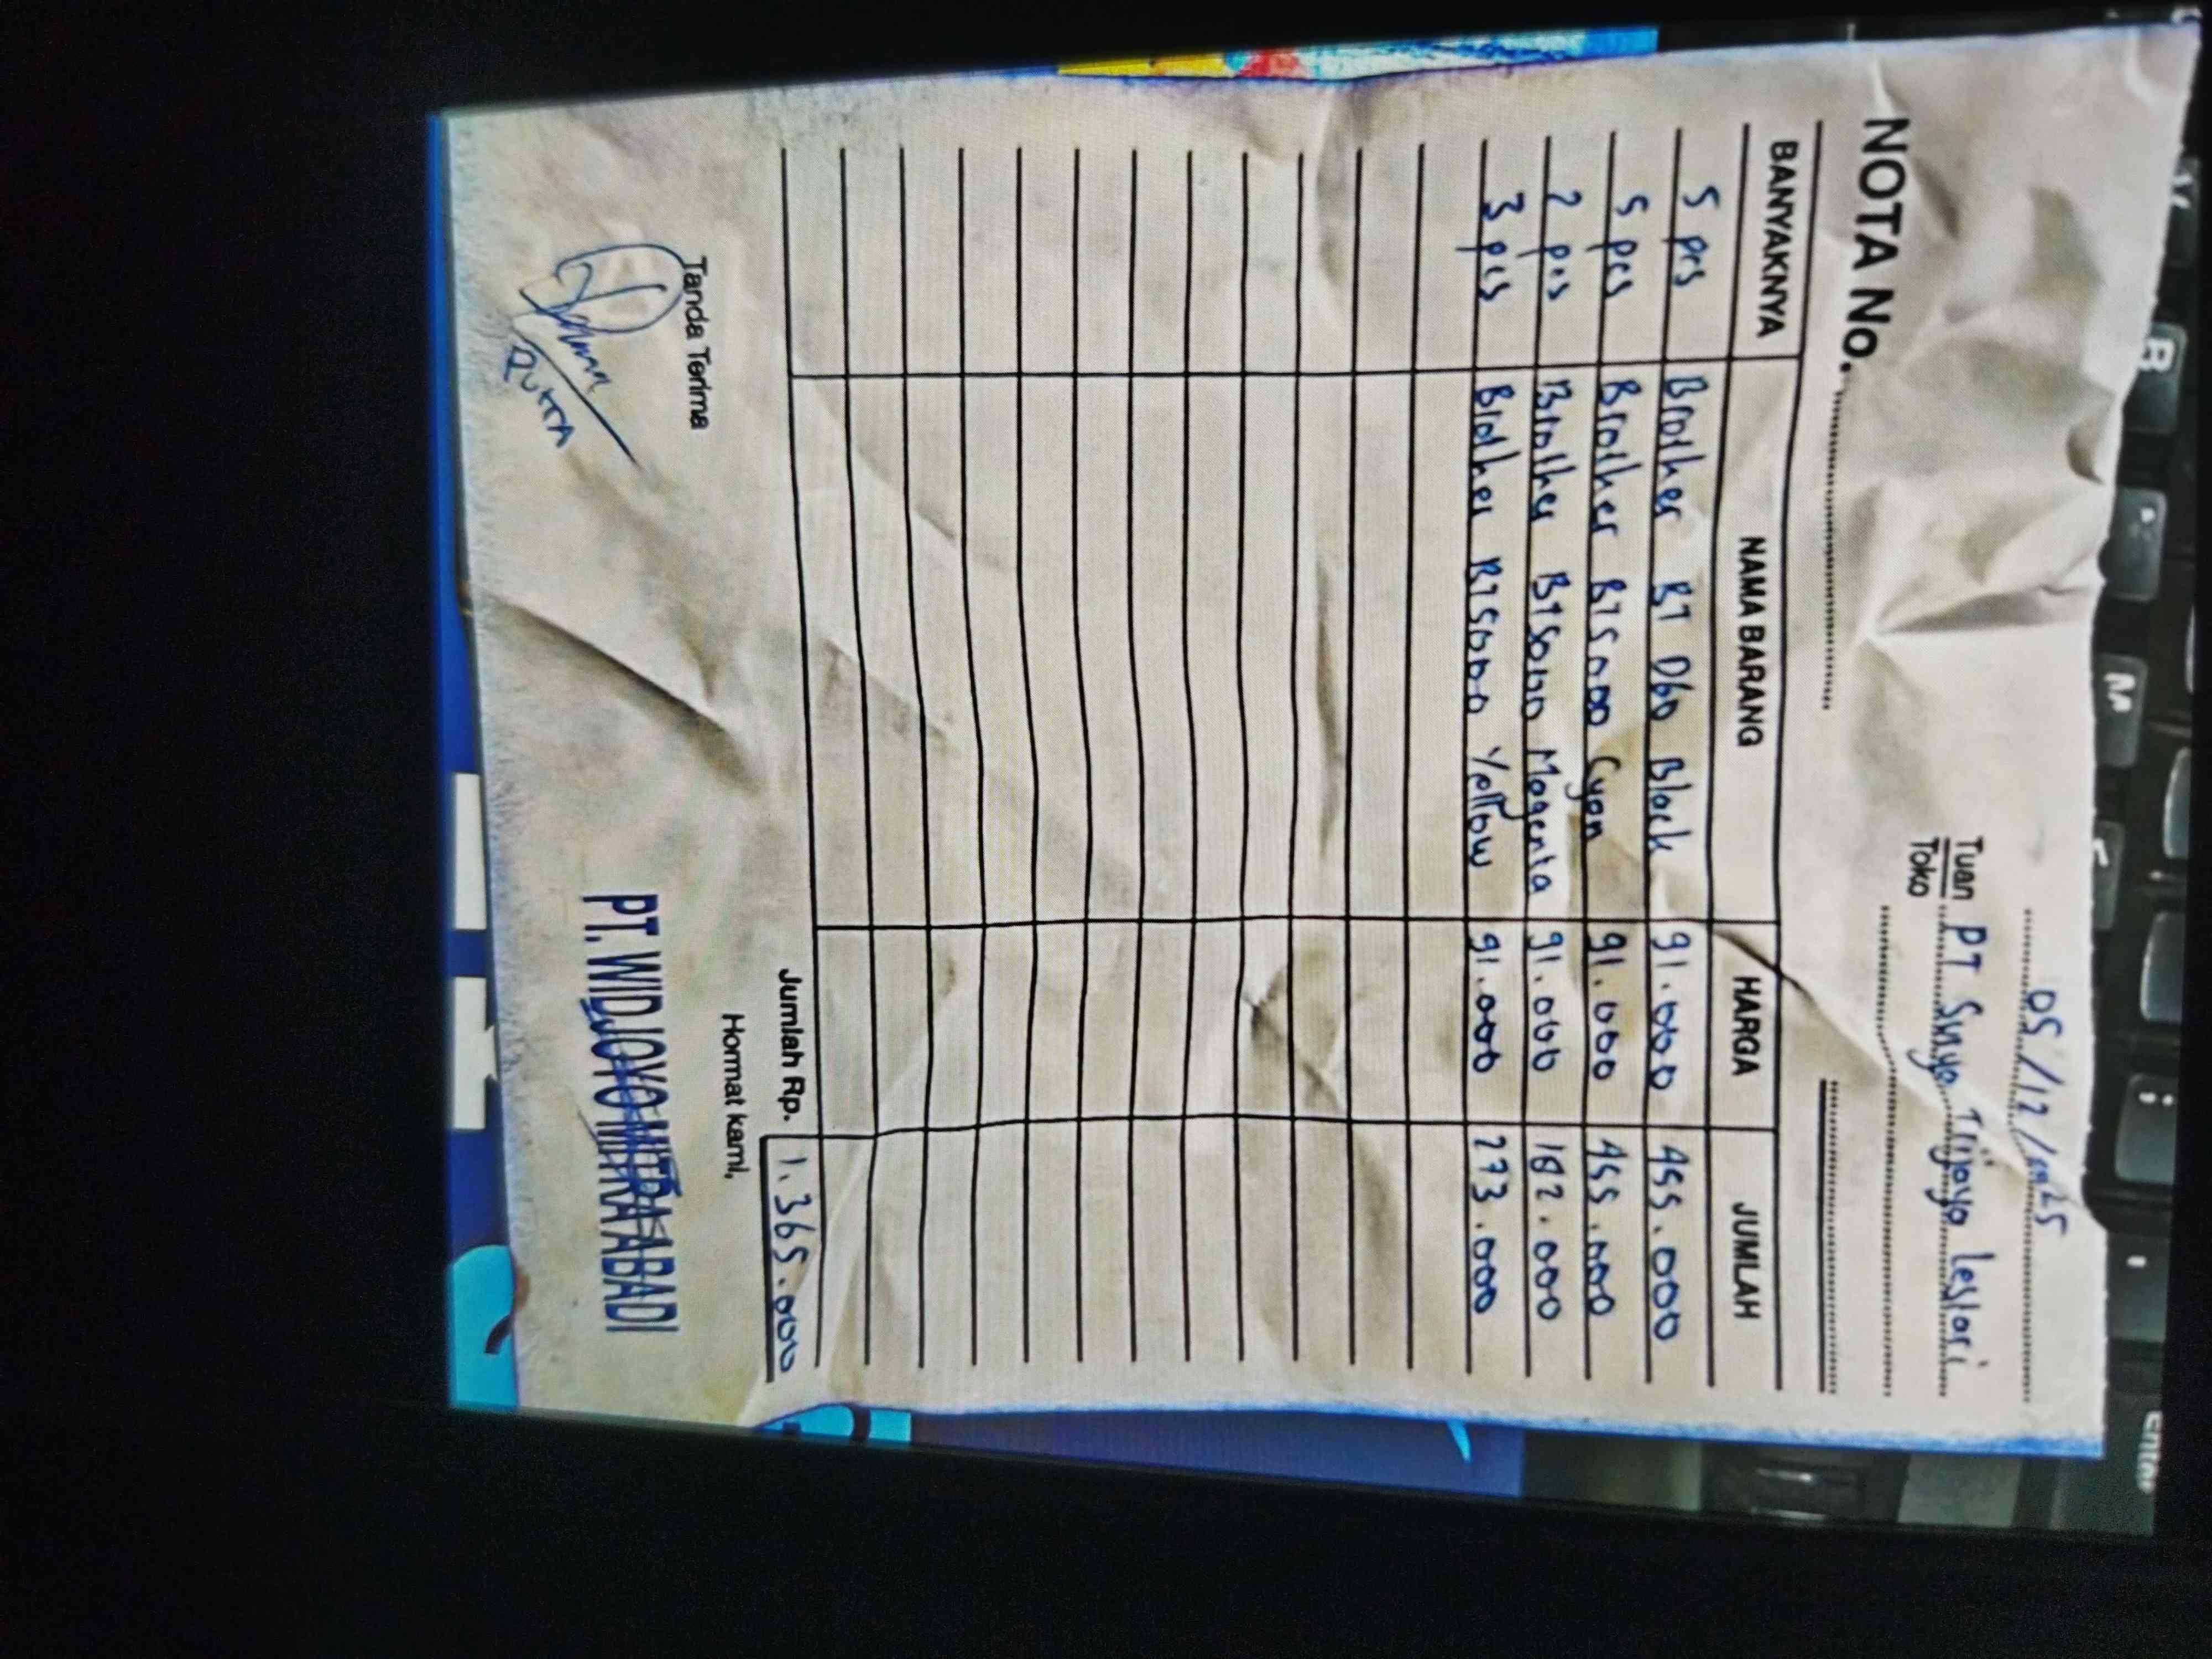 05/12/2025
Tuan PT Surya Trijaya Lestari
Toko
NOTA No.
BANYAKNYA NAMA BARANG HARGA JUMLAH
5 pcs Brother BT D60 Black 91.000 455.000
5 pcs Brother BT5000 Cyan 91.000 455.000
2 pcs Brother BT5000 Magenta 91.000 182.000
3 pcs Brother BT5000 Yellow 91.000 273.000
Jumlah Rp. 1.365.000
Tanda Terima Hormat kami,
PUTRA
PT. WIDJOYO MITRA ABADI
B
M
Enter